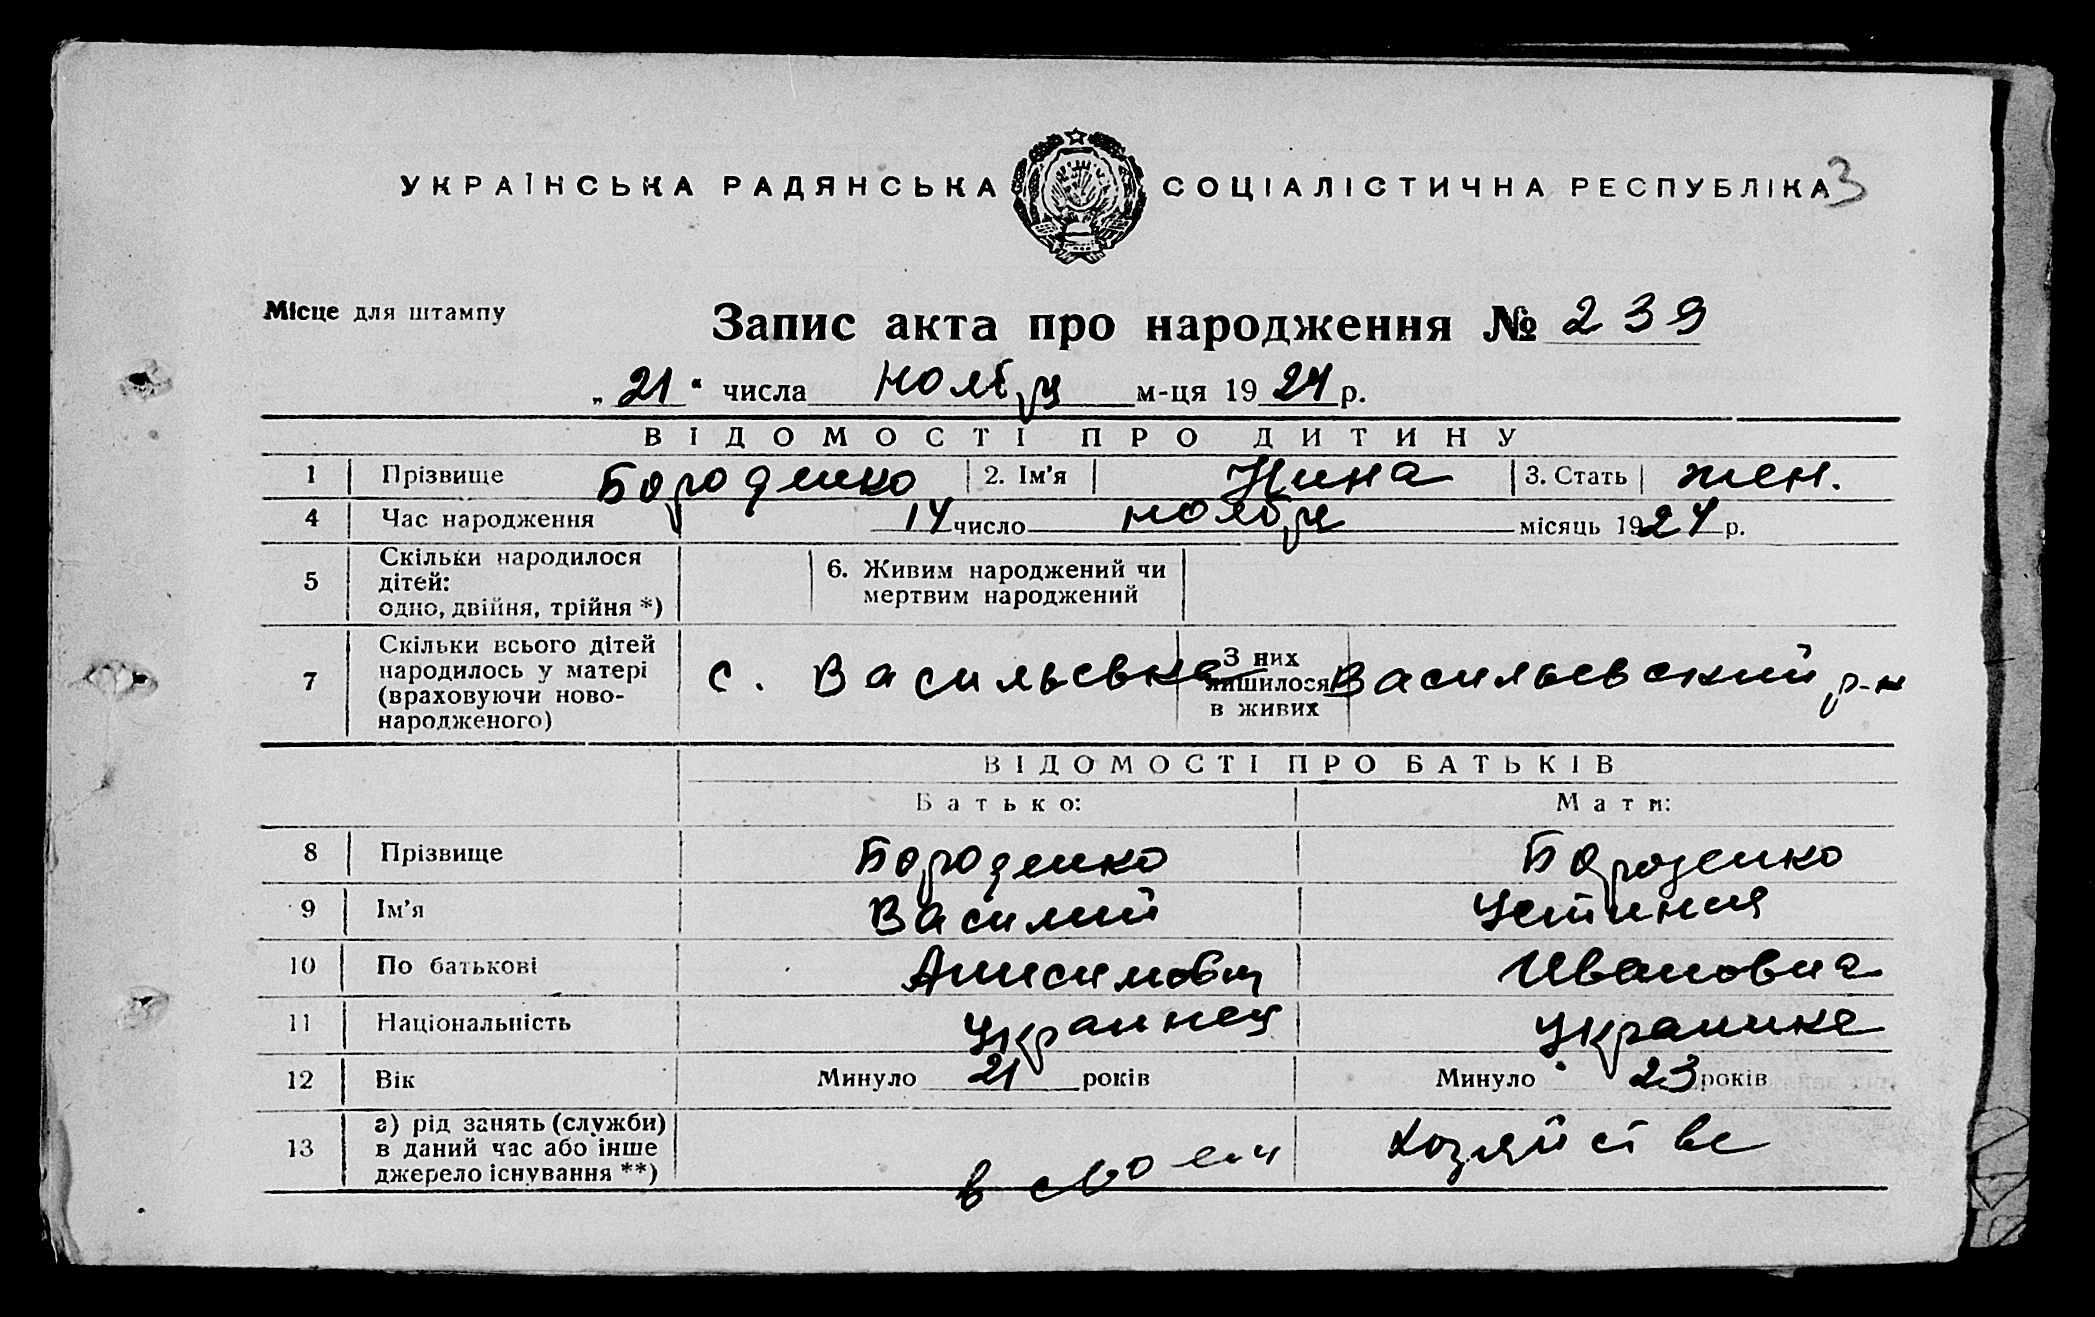 УКРАЇНСЬКА РАДЯНСЬКА СОЦІАЛІСТИЧНА РЕСПУБЛІКА 3
Місце для штампу
Запис акта про народження № 239
„21“ числа ноября м-ця 1924 р.
ВІДОМОСТІ ПРО ДИТИНУ
1 Прізвище Бороденко 2. Ім’я Нина 3. Стать жен.
4 Час народження 14 число ноября місяць 1924 р.
5 Скільки народилося дітей: одно, двійня, трійня *) 6. Живим народжений чи мертвим народжений
7 Скільки всього дітей народилось у матері (враховуючи новонародженого) с. Васильевка З них лишилося в живих Васильевский р-н
ВІДОМОСТІ ПРО БАТЬКІВ
Батько: Мати:
8 Прізвище Бороденко Бороденко
9 Ім’я Василий Устиния
10 По батькові Анисимович Ивановна
11 Національність украинец украинка
12 Вік Минуло 21 років Минуло 23 років
13 а) рід занять (служби) в даний час або інше джерело існування **) в своем хозяйстве